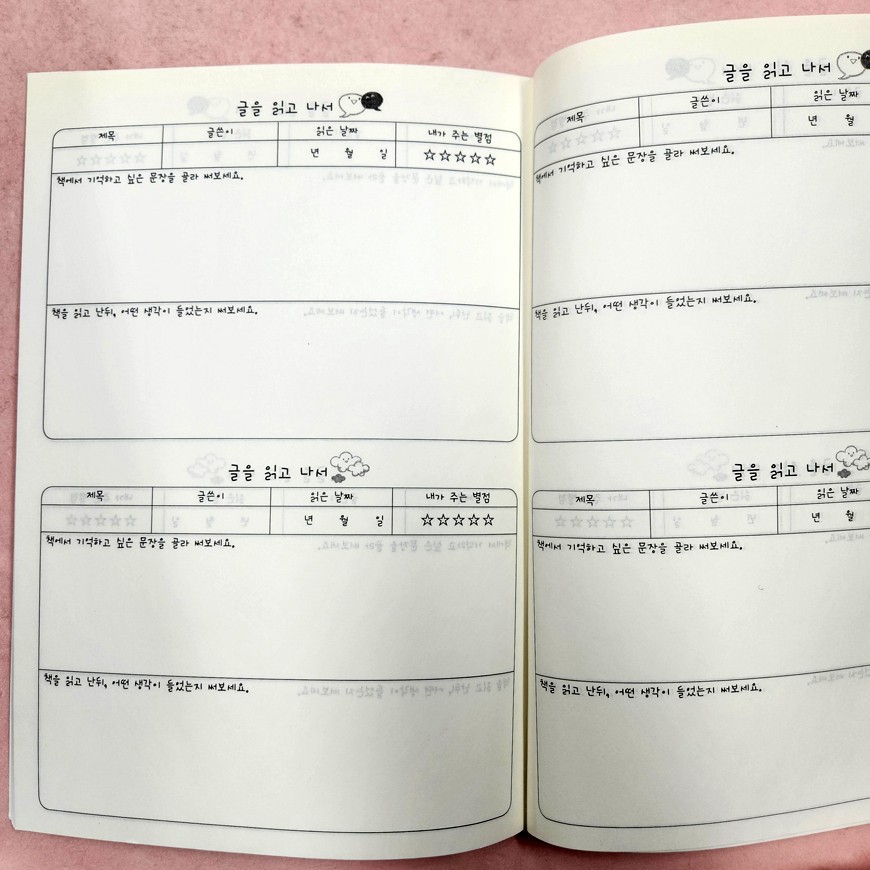 글을 읽고 나서
제목 글쓴이 읽은 날짜 내가 주는 별점
년 월 일 ☆☆☆☆☆
책에서 기억하고 싶은 문장을 골라 써보세요.
책을 읽고 난뒤, 어떤 생각이 들었는지 써보세요.
글을 읽고 나서
제목 글쓴이 읽은 날짜 내가 주는 별점
년 월 일 ☆☆☆☆☆
책에서 기억하고 싶은 문장을 골라 써보세요.
책을 읽고 난뒤, 어떤 생각이 들었는지 써보세요.
글을 읽고 나서
제목 글쓴이 읽은 날짜
년 월
책에서 기억하고 싶은 문장을 골라 써보세요.
책을 읽고 난뒤, 어떤 생각이 들었는지 써보세요.
글을 읽고 나서
제목 글쓴이 읽은 날짜
년 월
책에서 기억하고 싶은 문장을 골라 써보세요.
책을 읽고 난뒤, 어떤 생각이 들었는지 써보세요.